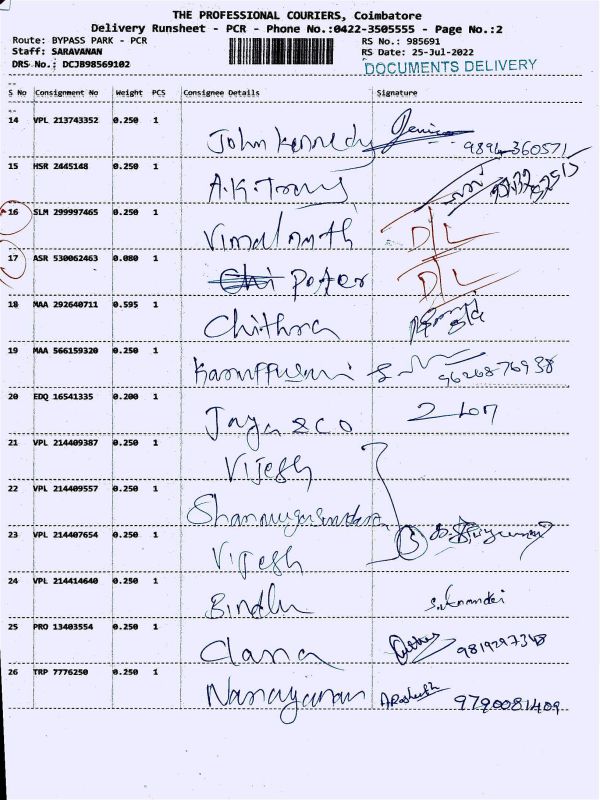 THE PROFESSIONAL COURIERS, Coimbatore
Delivery Runsheet - PCR - Phone No.:0422-3505555 - Page No.:2
Route: BYPASS PARK - PCR RS No.: 985691
Staff: SARAVANAN RS Date: 25-Jul-2022
DRS No.: DCJB98569102 DOCUMENTS DELIVERY
S No Consignment No Weight PCS Consignee Details Signature
14 VPL 213743352 0.250 1
John Kennedy 9894-360571
15 HSR 2445148 0.250 1
A.K.
16 SLM 299997465 0.250 1
Vimal nath D/L
17 ASR 530062463 0.080 1
D/L
18 MAA 292640711 0.595 1
Chithra
19 MAA 566159320 0.250 1
Karuppusami 96268-76938
20 EDQ 16541335 0.200 1
Jaya & CO
21 VPL 214409387 0.250 1
Vijesh
22 VPL 214409557 0.250 1
23 VPL 214407654 0.250 1
Vijesh 3
24 VPL 214414640 0.250 1
Bindhu
25 PRO 13403554 0.250 1
Clana 9819297348
26 TRP 7776250 0.250 1
Narayanan 9790081409